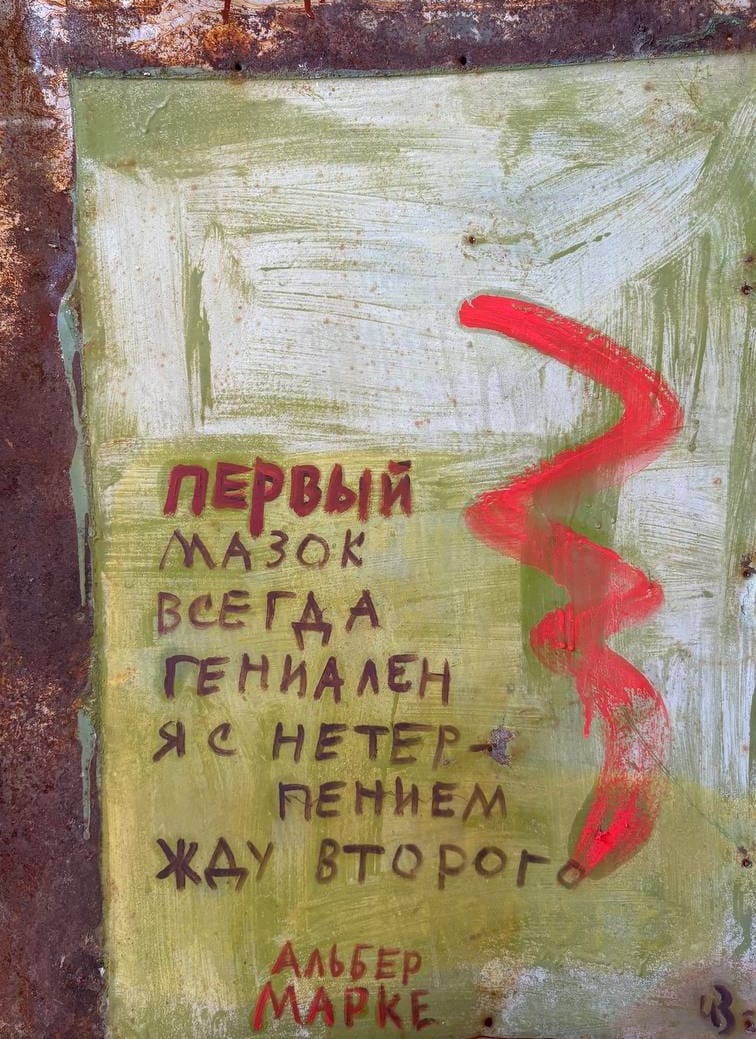 ПЕРВЫЙ
МАЗОК
ВСЕГДА
ГЕНИАЛЕН
Я С НЕТЕР-
ПЕНИЕМ
ЖДУ ВТОРОГО
АЛЬБЕР
МАРКЕ